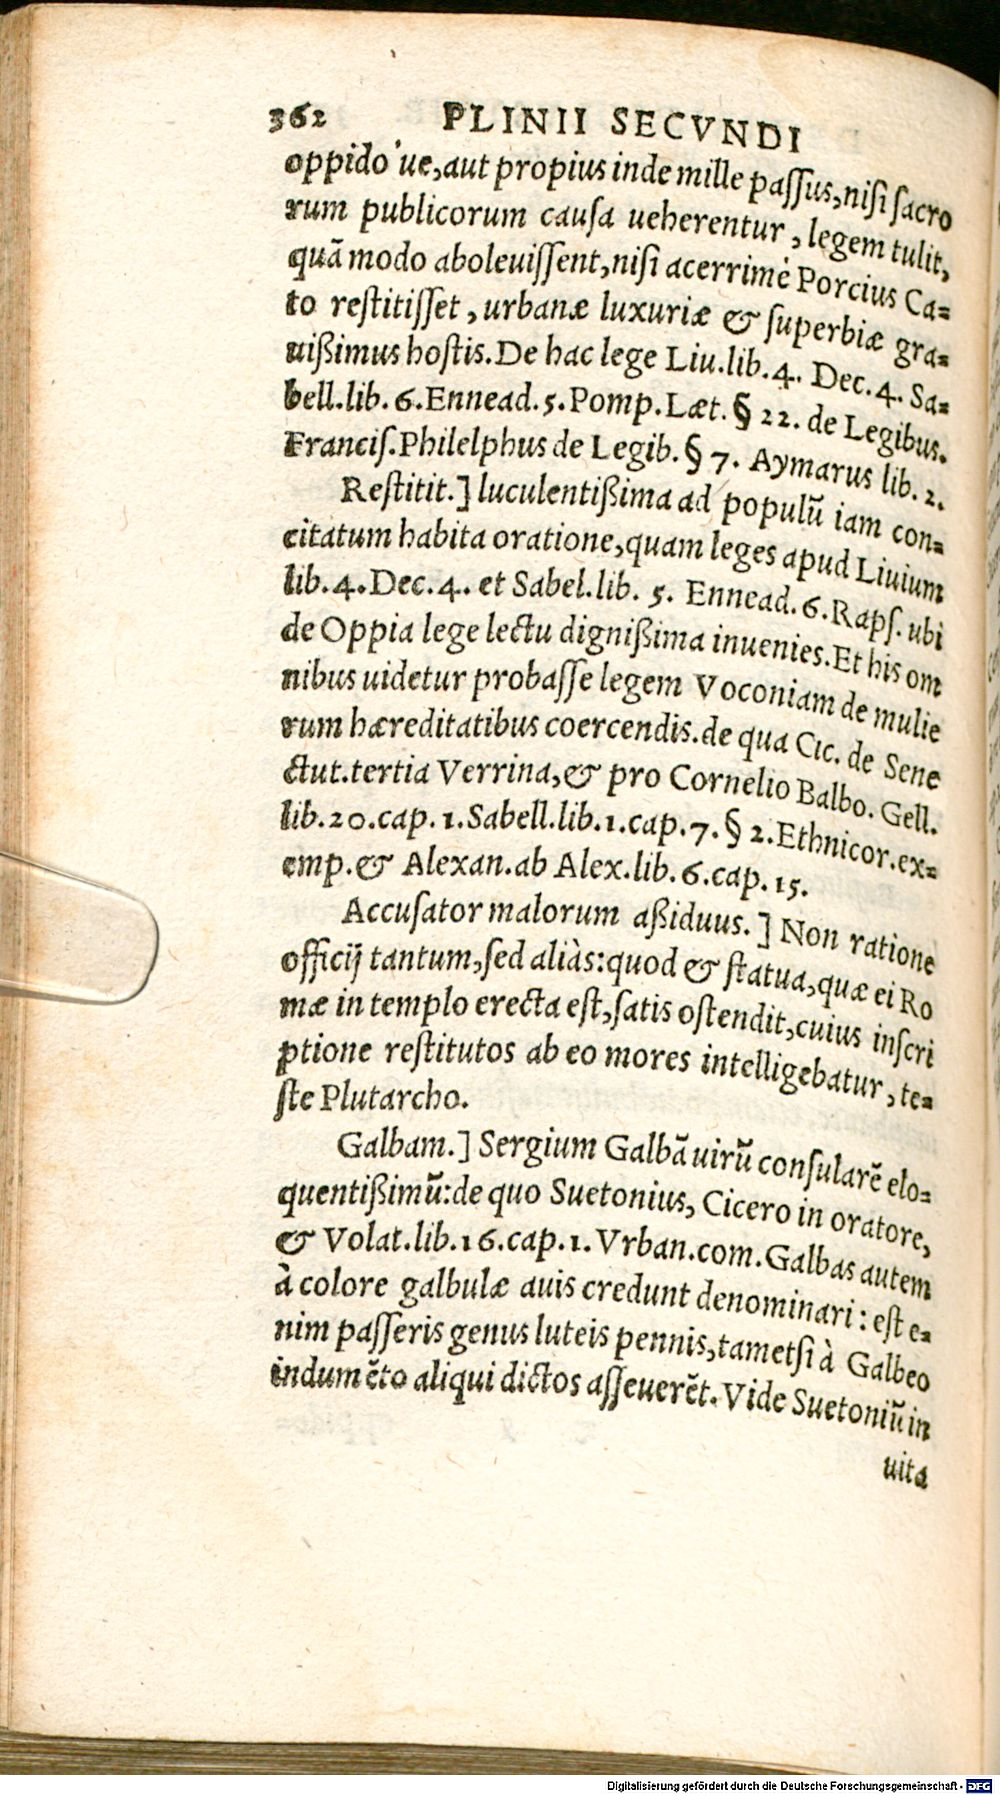 362 PLINII SECVNDI
oppido'ue, aut propius inde mille paſſus, niſi ſacro
rum publicorum cauſa ueherentur, legem tulit,
quā modo aboleuiſſent, niſi acerrimè Porcius Ca=
to reſtitiſſet, urbanæ luxuriæ & ſuperbiæ gra=
uißimus hoſtis. De hac lege Liu. lib. 4. Dec. 4. Sa=
bell. lib. 6. Ennead. 5. Pomp. Læt. § 22. de Legibus.
Franciſ. Philelphus de Legib. § 7. Aymarus lib. 2.
Reſtitit.] luculentißima ad populū iam con=
citatum habita oratione, quam leges apud Liuium
lib. 4. Dec. 4. et Sabel. lib. 5. Ennead. 6. Rapſ. ubi
de Oppia lege lectu dignißima inuenies. Et his om
nibus uidetur probaſſe legem Voconiam de mulie
rum hæreditatibus coercendis. de qua Cic. de Sene
ctut. tertia Verrina, & pro Cornelio Balbo. Gell.
lib. 20. cap. 1. Sabell. lib. 1. cap. 7. § 2. Ethnicor. ex=
emp. & Alexan. ab Alex. lib. 6. cap. 15.
Accuſator malorum aßiduus.] Non ratione
officij tantum, ſed aliàs: quod & ſtatua, quæ ei Ro
mæ in templo erecta eſt, ſatis oſtendit, cuius inſcri
ptione reſtitutos ab eo mores intelligebatur, te=
ſte Plutarcho.
Galbam.] Sergium Galbā uirū conſularē elo=
quentißimū: de quo Suetonius, Cicero in oratore,
& Volat. lib. 16. cap. 1. Vrban. com. Galbas autem
à colore galbulæ auis credunt denominari: eſt e=
nim paſſeris genus luteis pennis, tametſi à Galbeo
indumēto aliqui dictos aſſeuerēt. Vide Suetoniū in
uita
Digitalisierung gefördert durch die Deutsche Forschungsgemeinschaft - DFG